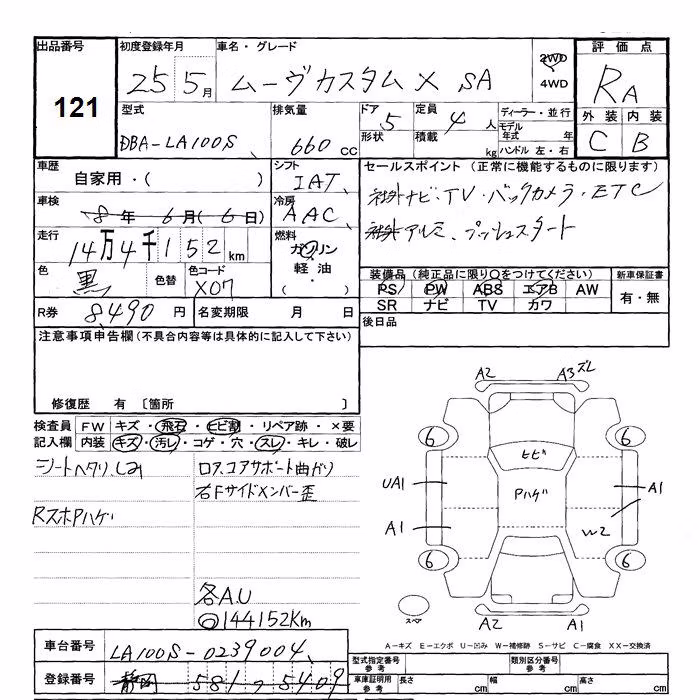 出品番号 初度登録年月 車名・グレード 評価点
121 25 5月 ムーヴカスタム X SA 2WD 4WD RA
外装 内装
C B
型式 排気量 ドア 定員 ディーラー・並行
DBA-LA100S 660cc 5 4人 モデル年式 年
形状 積載 kg ハンドル 左・右
車歴 シフト セールスポイント(正常に機能するものに限ります)
自家用・( ) IAT 社外ナビ・TV・バックカメラ・ETC
車検 冷房
8年 6月(6日) AAC 社外アルミ、プッシュスタート
走行 燃料
14万4千152km ガソリン
軽油・( )
色 色替 色コード 装備品(純正品に限り○をつけてください) 新車保証書
黒 X07 PS PW ABS エアB AW 有・無
SR ナビ TV カワ
R券 8,490円 名変期限 月 日 後日品
注意事項申告欄(不具合内容等は具体的に記入して下さい)
修復歴 有 〔箇所 〕
検査員 FW キズ・飛石・ヒビ割・リペア跡・×要
記入欄 内装 キズ・汚レ・コゲ・穴・スレ・キレ・破レ
シートヘタリ、しみ ロア、コアサポート曲がり
右Fサイドメンバー歪
RスポPハゲ
各A.U
◎144152Km
A2 A3ズレ
6 6
ヒビ
UA1 Pハゲ A1
A1 W2
6 6
スペア A2 A1
A-キズ E-エクボ U-凹み W-補修跡 S-サビ C-腐食 XX-交換済
車台番号 LA100S-0239004 型式指定番号 参考 類別区分番号 参考
登録番号 静岡 581 ワ 5409 車庫証明用 参考 長さ cm 幅 cm 高さ cm